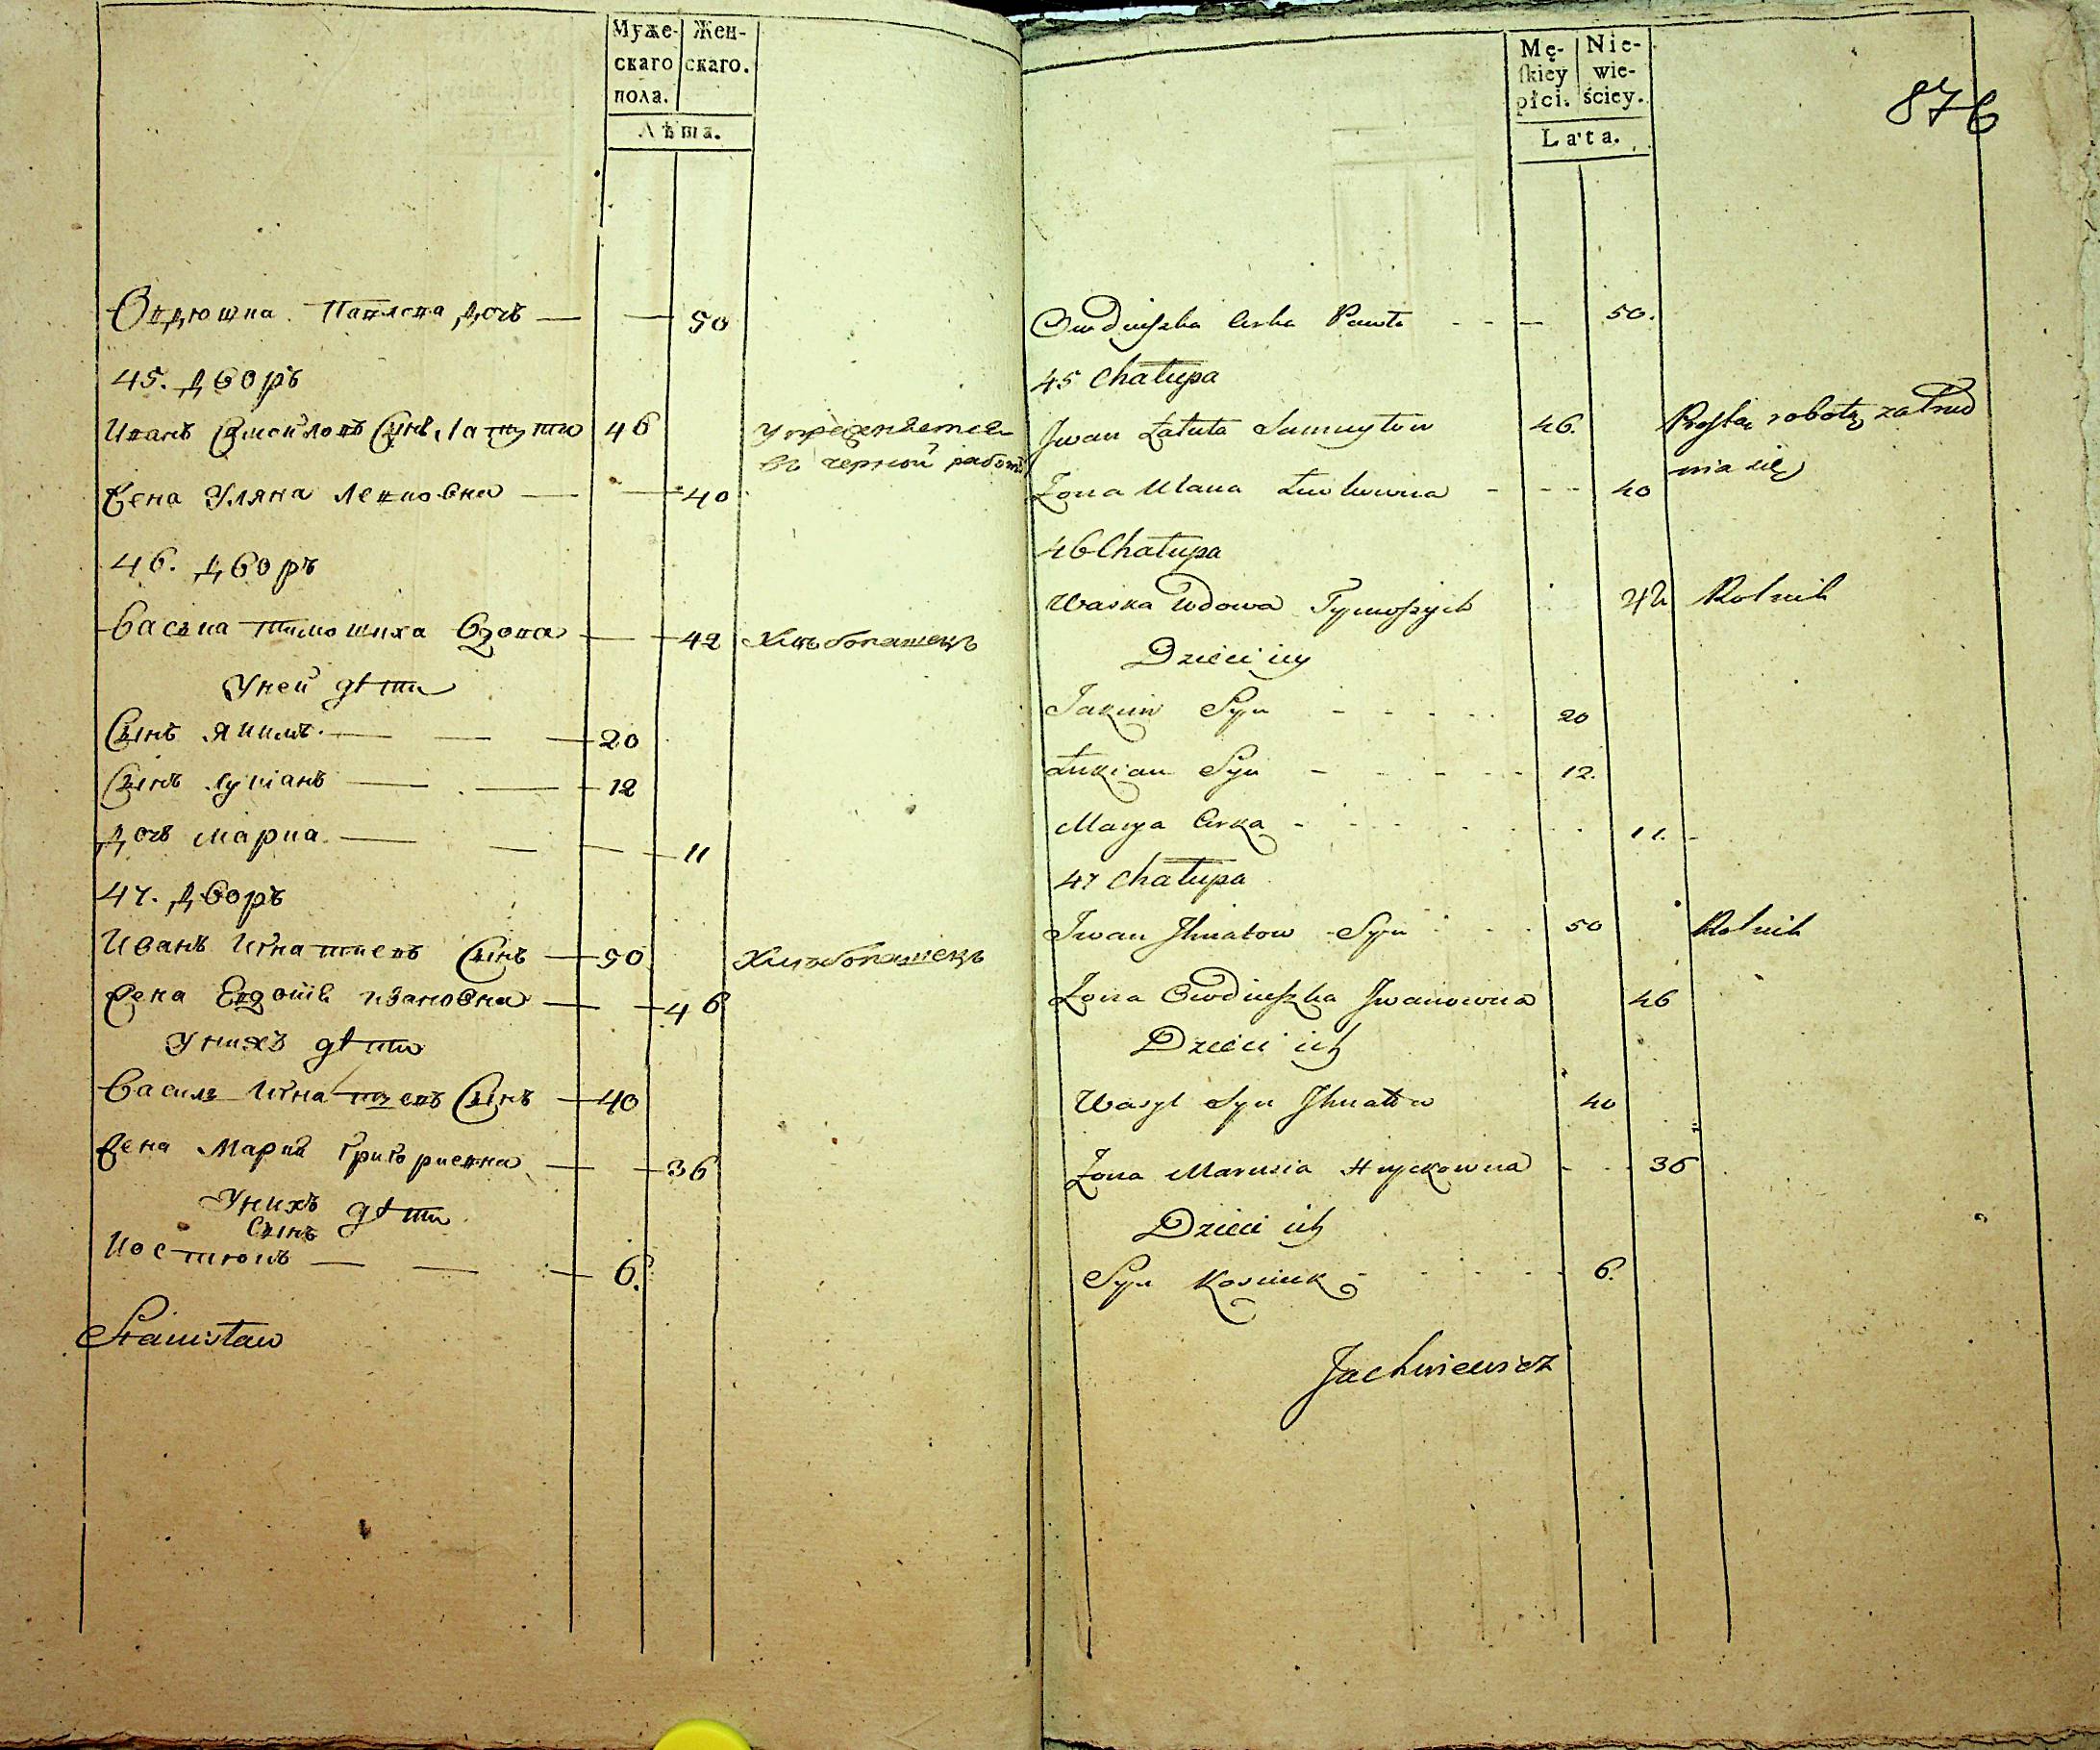 Муже- Жен-
скаго скаго.
пола.
Лѣта.
Овдюшка Павлова дочъ — — 50
45. дворъ
Иванъ Самойловъ Сынъ Латута 46 упражняется
въ черной работѣ
Жена Уляна Левковна — — 40
46. дворъ
Васька Тимошиха Вдова — — 42 Хлѣбопашецъ
У ней дѣти
Сынъ Якимъ — — — 20
Сынъ Лукіанъ — — — 12
дочъ Мариа — — — — 11
47. дворъ
Иванъ Игнатиевъ Сынъ — 50 Хлѣбопашецъ
Жена Евдотія Ивановна — — 46
У нихъ дѣти
Василь Игнатиевъ Сынъ — 40
Жена Мария Григориевна — — 36
У нихъ дѣти
Сынъ
Костюкъ — — — 6.
Stanisław
Mę- Nie-
skiey wie-
płci. ściey.
Lata.
876
Owdiuszka Corka Pawła - - — 50.
45 Chałupa
Jwan Łatuta Samuyłow 46. Prostą robotą zatrud
nia się
Zona Ulana Lewkowna - - - 40
46 Chałupa
Waska Wdowa Tymoszych 42 Rolnik
Dzieci iey
Jakim Syn - - - - 20
Łukian Syn - - - - - 12.
Marya Corka - - - - - 11.
47 Chałupa
Iwan Jhnatow Syn - - - 50 Rolnik
Zona Owdiuszka Jwanowna 46
Dzieci ich
Wasyl Syn Jhnatow 40
Zona Marusia Hryckowna - - 36
Dzieci ich
Syn Kosciuk - - - - - 6.
Jachniewicz